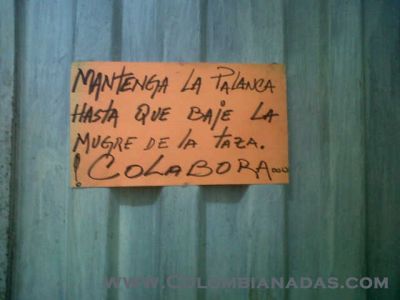 MANTENGA LA PALANCA
HASTA QUE BAJE LA
MUGRE DE LA TAZA.
! COLABORA...
www.Colombianadas.com